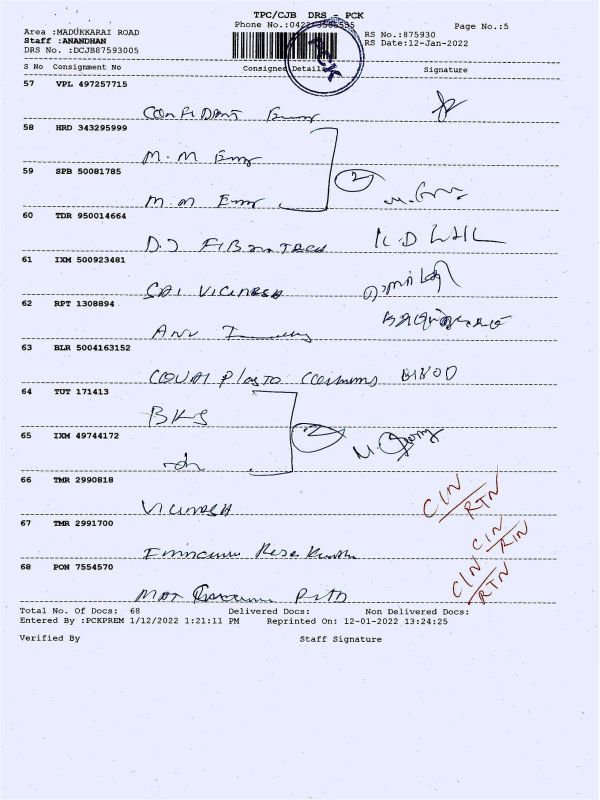 TPC/CJB DRS - PCK
Phone No.:0422-3586555 Page No.:5
Area :MADUKKARAI ROAD RS No.:875930
Staff :ANANDHAN RS Date:12-Jan-2022
DRS No. :DCJB87593005
PCK
S No Consignment No Consigned Details Signature
57 VPL 497257715
CONFIDANT
58 HRD 343295999
M.M Engg
2
59 SPB 50081785
M.M Engg
60 TDR 950014664
D.J FIBROTECH
61 IXM 500923481
SAI VIGNESH
62 RPT 1308894
63 BLR 5004163152
COVAI PlasTO BINOD
64 TUT 171413
BKS
2
65 IXM 49744172
-do-
66 TMR 2990818
VIGNESH CIN/RTN
67 TMR 2991700
CIN/RTN
68 PON 7554570
CIN/RTN
Total No. Of Docs: 68 Delivered Docs: Non Delivered Docs:
Entered By :PCKPREM 1/12/2022 1:21:11 PM Reprinted On: 12-01-2022 13:24:25
Verified By Staff Signature